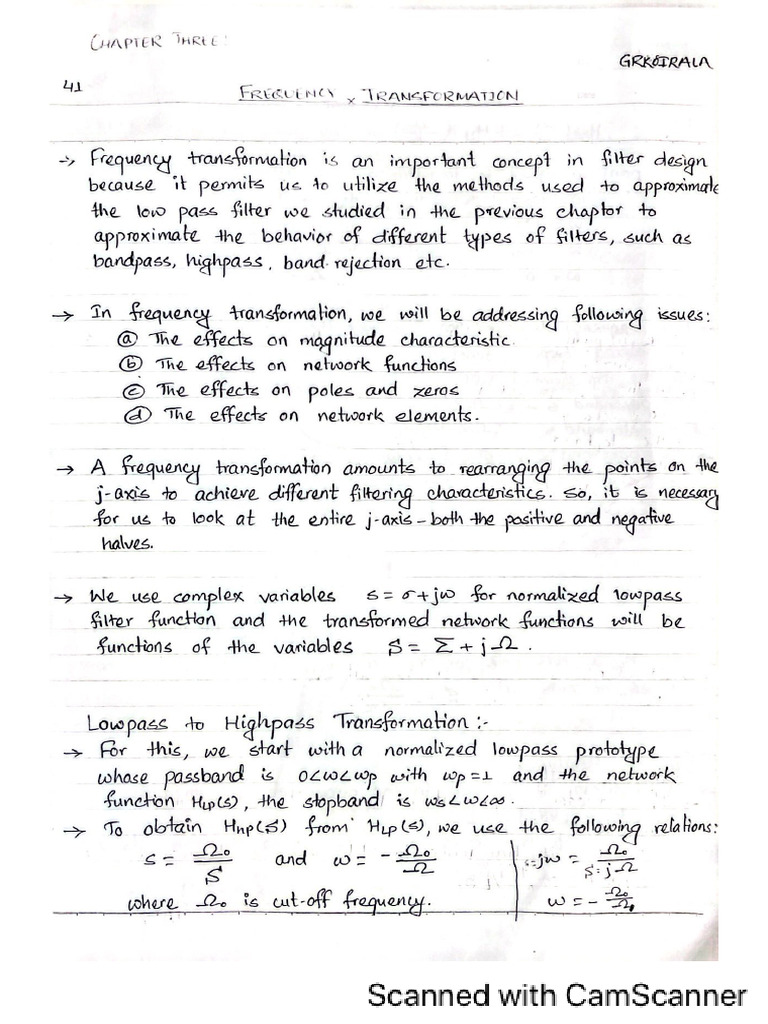 CHAPTER THREE:
GRKOIRALA
41
FREQUENCY x TRANSFORMATION
-> Frequency transformation is an important concept in filter design
because it permits us to utilize the methods used to approximate
the low pass filter we studied in the previous chaptor to
approximate the behavior of different types of filters, such as
bandpass, highpass, band rejection etc.
→ In frequency transformation, we will be addressing following issues:
ⓐ The effects on magnitude characteristic.
ⓑ The effects on network functions
ⓒ The effects on poles and zeros
ⓓ The effects on network elements.
→ A frequency transformation amounts to rearranging the points on the
j-axis to achieve different filtering characteristics. So, it is necessary
for us to look at the entire j-axis – both the positive and negative
halves.
→ We use complex variables s = σ+jω for normalized lowpass
filter function and the transformed network functions will be
functions of the variables S = Σ + jΩ.
Lowpass to Highpass Transformation :-
→ For this, we start with a normalized lowpass prototype
whose passband is 0<ω<ωp with ωp=1 and the network
function HLP(s), the stopband is ωs<ω<∞.
→ To obtain HHP(S) from HLP(s), we use the following relations:
s = Ωo/S and ω = - Ωo/Ω | ∴jω = Ωo/S:jΩ
where Ωo is cut-off frequency. | ω = - Ωo/Ω
Scanned with CamScanner